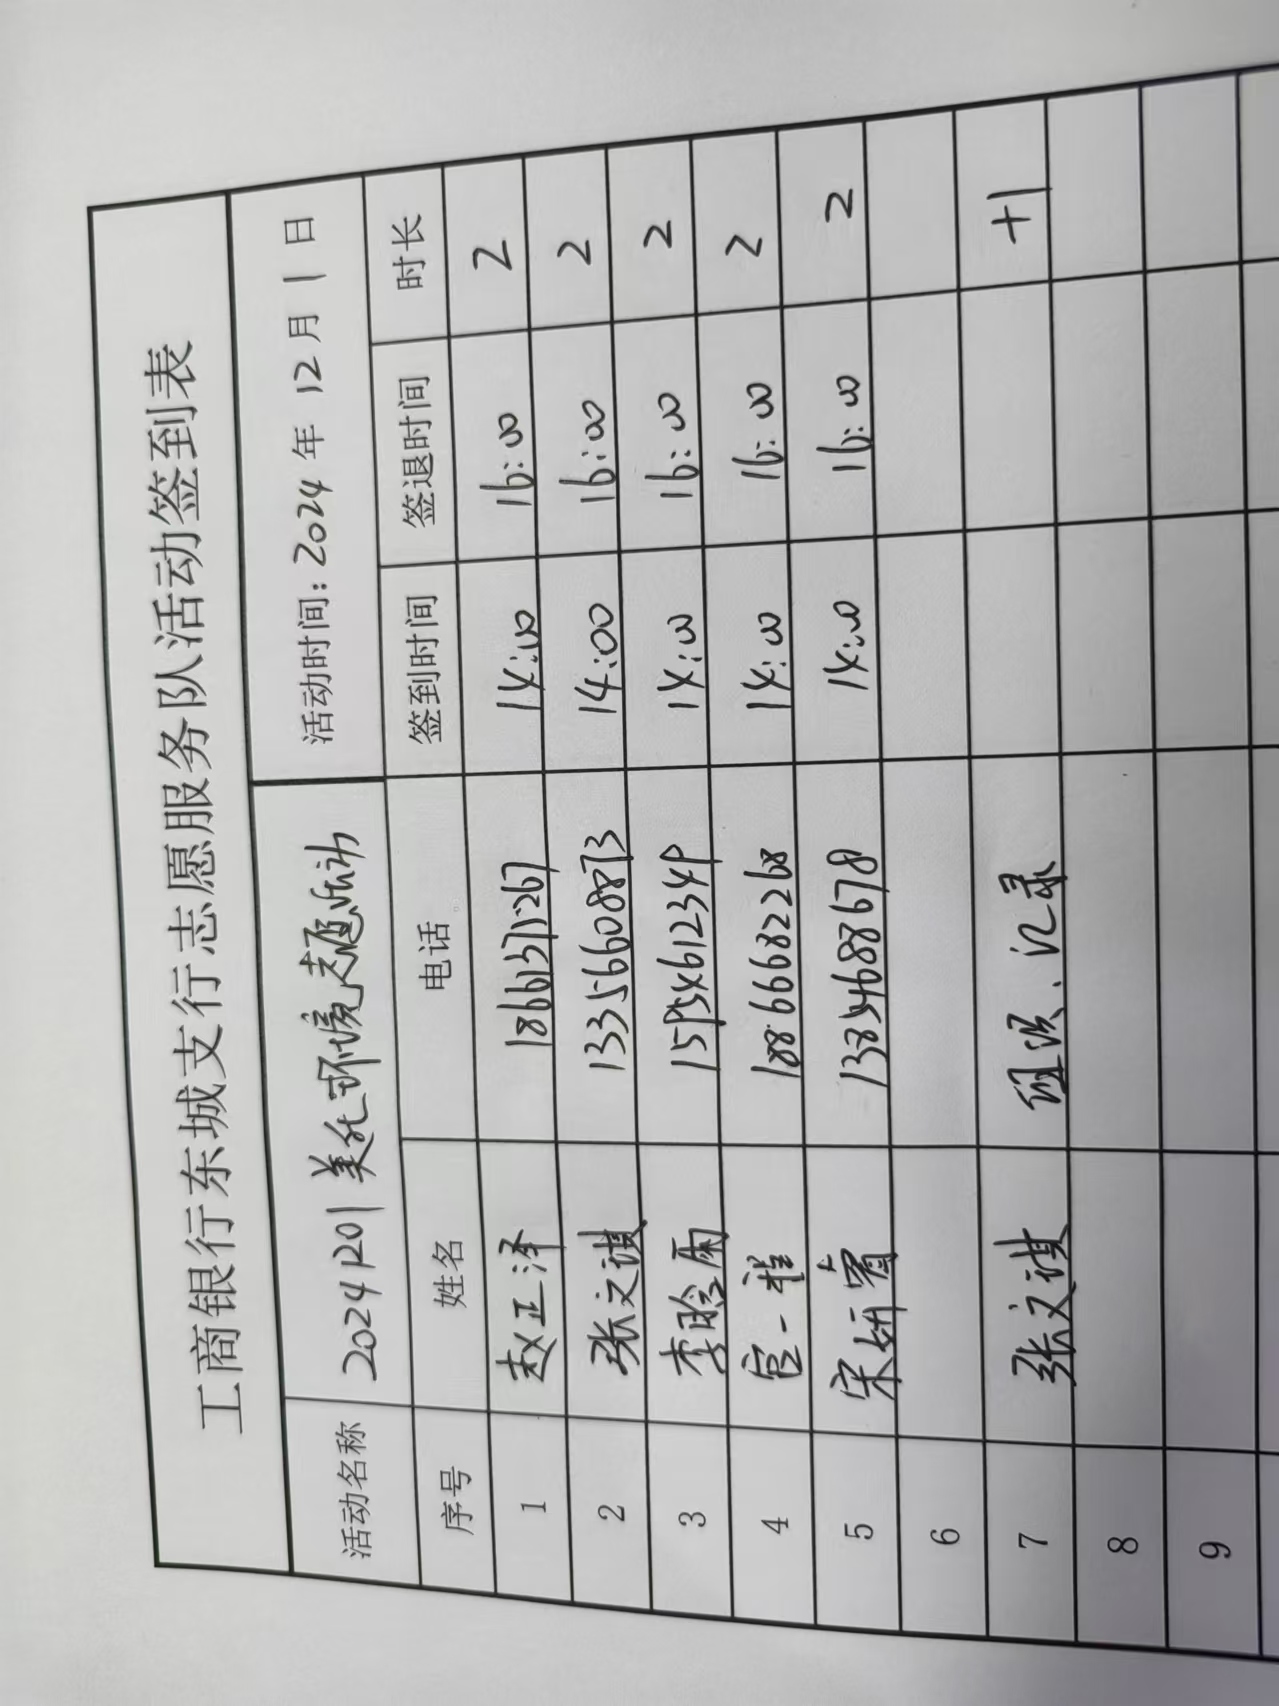 工商银行东城支行志愿服务队活动签到表
活动名称 20241201美化环境志愿活动 活动时间：2024年12月1日
序号 姓名 电话 签到时间 签退时间 时长
1 赵正泽 14:00 16:00 2
2 张文祺 13356608873 14:00 16:00 2
3 李晗雨 14:00 16:00 2
4 官一程 18866682268 14:00 16:00 2
5 宋妍 14:00 16:00 2
6
7 张文祺 组织、记录 +1
8
9